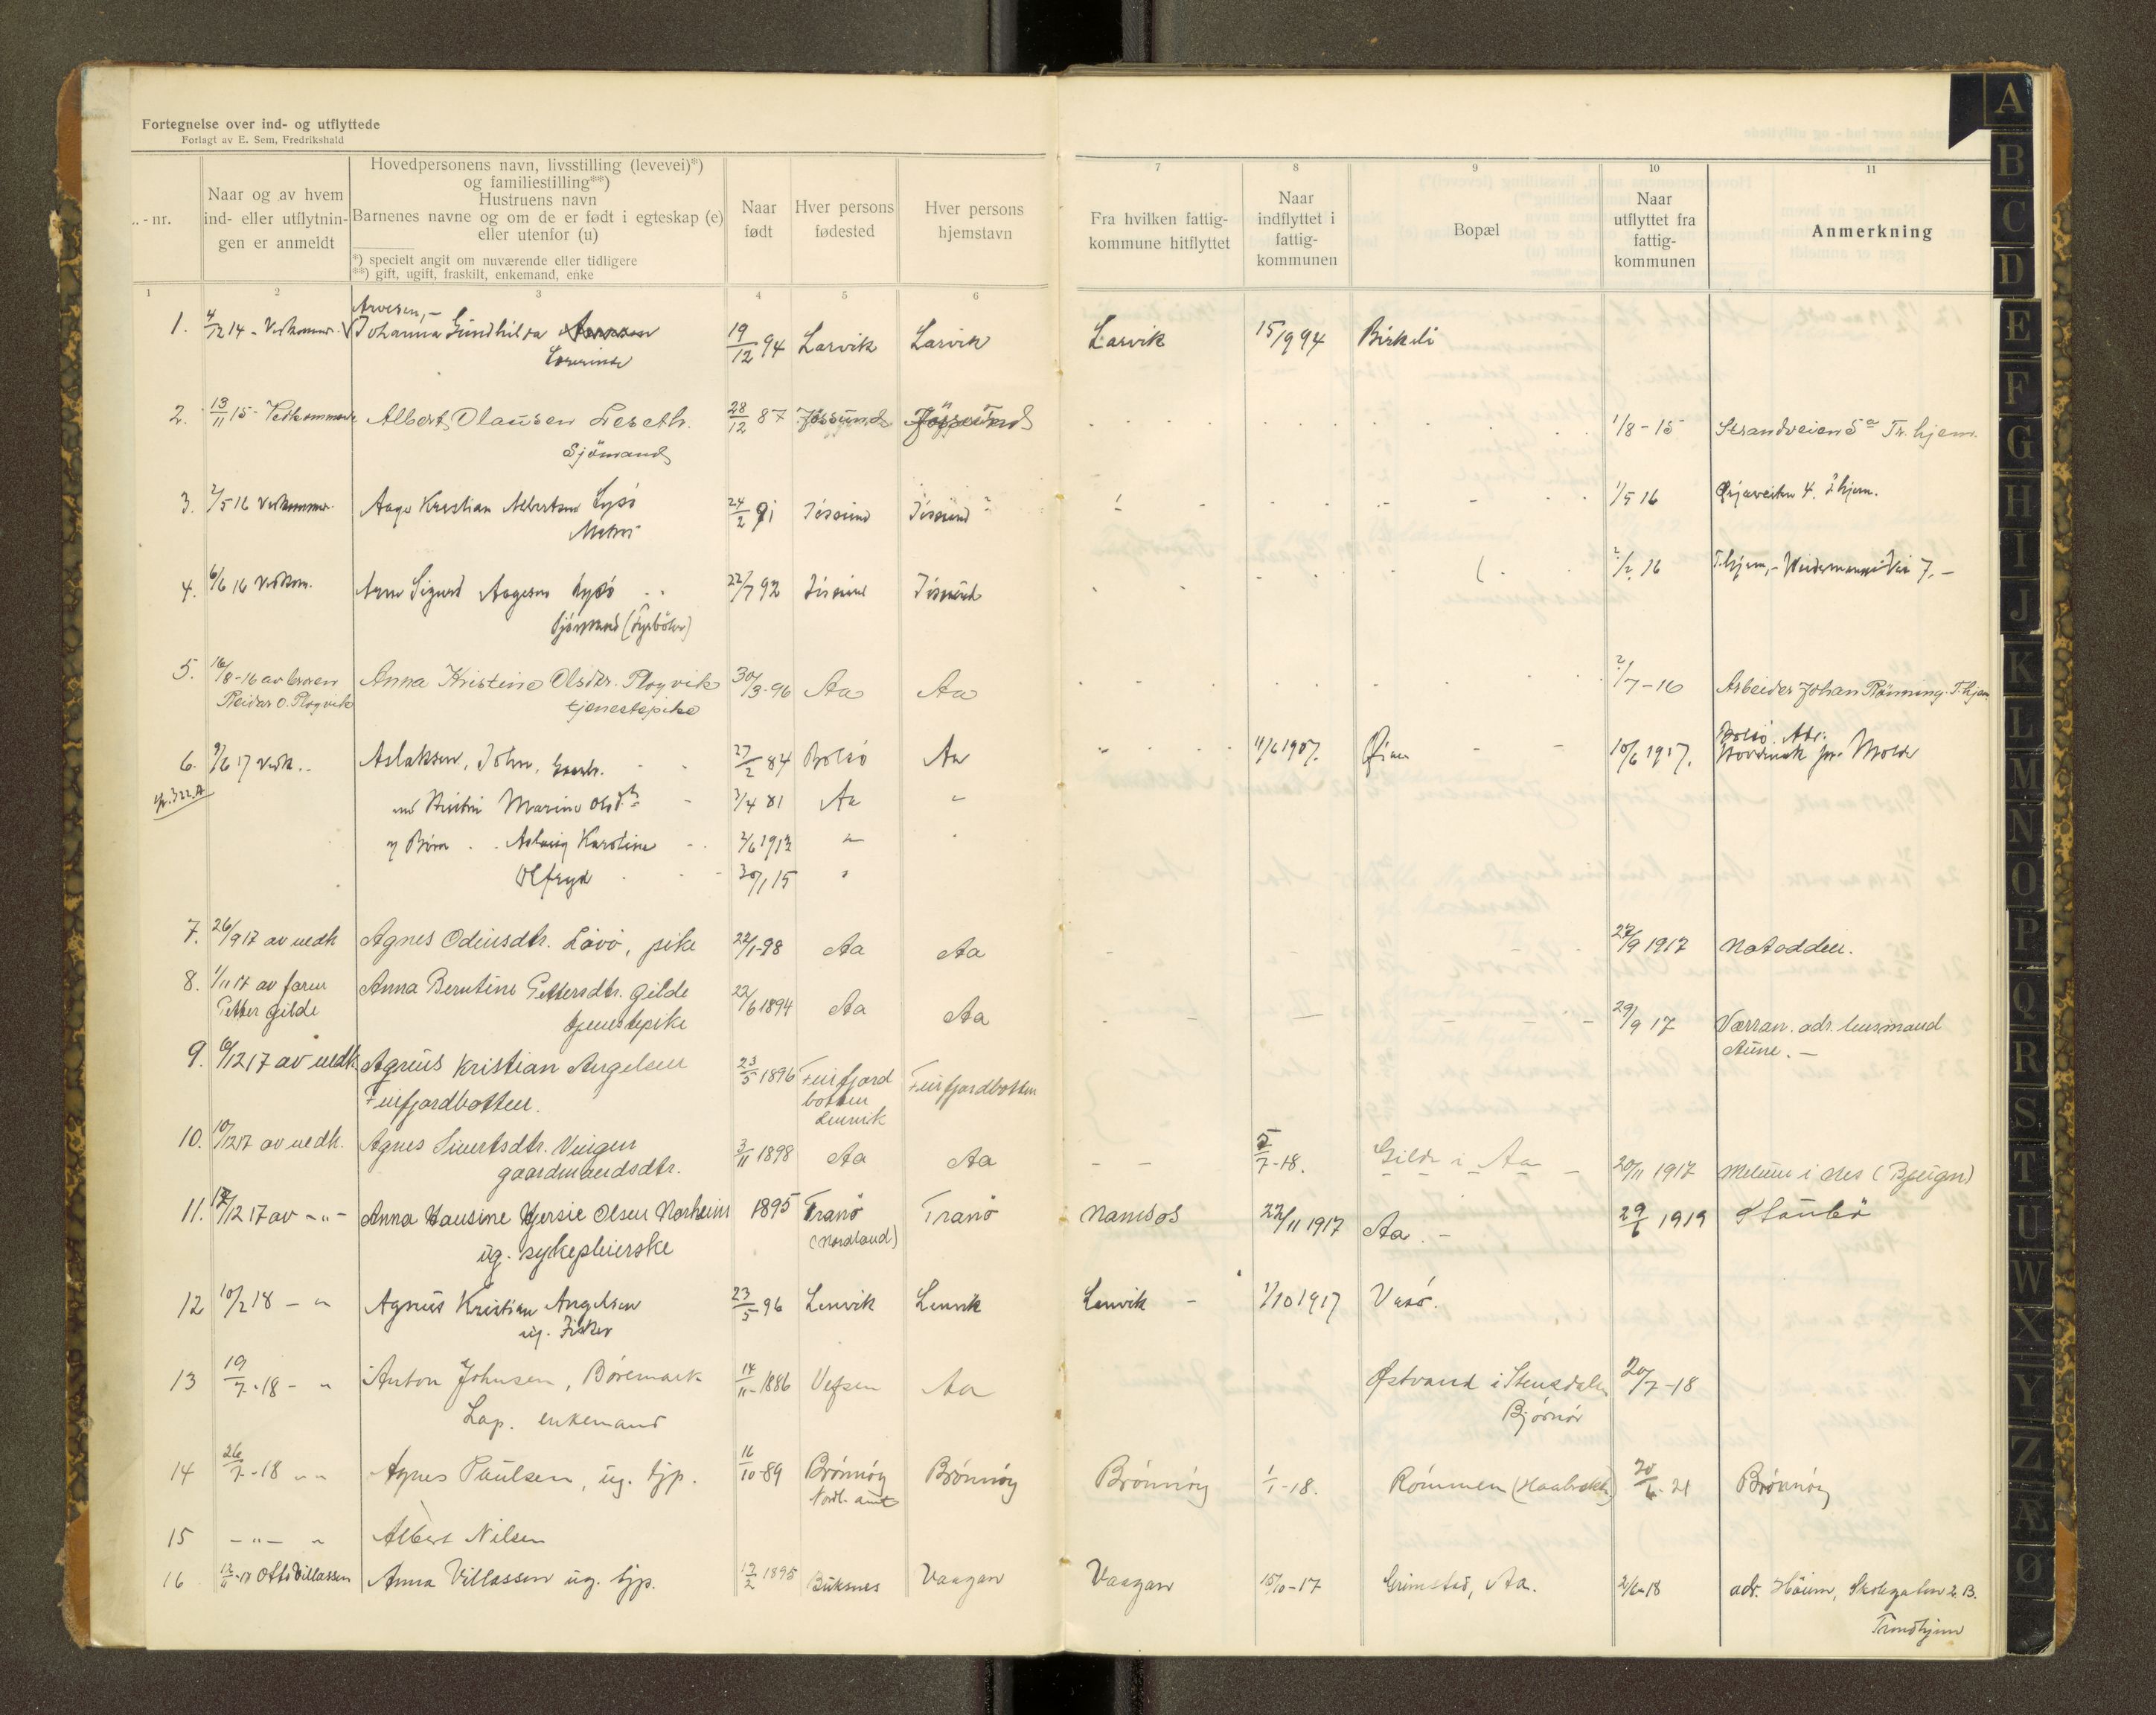 Fortegnelse over ind- og utflyttede
Forlagt av E. Sem, Fredrikshald
- nr.
Naar og av hvem
ind- eller utflytnin-
gen er anmeldt
Hovedpersonens navn, livsstilling (levevei)*)
og familiestilling**)
Hustruens navn
Barnenes navne og om de er født i egteskap (e)
eller utenfor (u)
*) specielt angit om nuværende eller tidligere
**) gift, ugift, fraskilt, enkemand, enke
Naar
født
Hver persons
fødested
Hver persons
hjemstavn
Fra hvilken fattig-
kommune hitflyttet
Naar
indflyttet i
fattig-
kommunen
Bopæl
Naar
utflyttet fra
fattig-
kommunen
Anmerkning
1 2 3 4 5 6 7 8 9 10 11
Arvesen,-
1. 4/12 14 - Johanna Gundhilda 19/12 94 Larvik Larvik Larvik 15/9 94 Birkeli
Lærerinde
2. 13/11 15 - Vedkommende Albert Olausen Leseth. 28/12 87 Jøssund Jøssund 1/8 - 15 Strandveien 5a Tr.hjem.
Sjömand
3. 2/5 16 Vedkommen Aage Kristian Albertsen Lysö 24/2 91 Jösund Jösund 1/5 16 4. Thjem.
4. 6/6 16 Vedkom. Sigurd Aagesen Lysö 22/7 92 Jösund Jösund 2/2 16 Thjem,- Weidemannsvei 7.-
Sjömand (Fyrböter)
5. 16/8 - 16 av broren Anna Kristine Olsdtr. Plogvik 30/3 - 96 Aa Aa 2/7 - 16 Arbeider Johan Rönning. T.hjem
Reidar O. Plogvik tjenestepike
6. 9/6 17 vedk.. Aslaksen, John, 27/2 84 Bolsö Aa 11/6 1907. Øien 10/6 1917. Bolsö. Adr.
pr. Molde
322.A Hustru Marine Olsd. 3/4 81 Aa "
og Børn Aslaug Karoline 2/6 1913 "
Olfryd 30/1 15 "
7. 26/9 17 av vedk Agnes Odinsdtr. Lövö, pike 22/1-98 Aa Aa 27/9 1917 Notodden.
8. 1/11 17 av faren Anna Berntine Pettersdtr. Gilde 22/6 1894 Aa Aa 29/9 17 Værran. adr. husmand
Petter Gilde tjenestepike Aune. -
9. 6/12 17 av vedk Agnius Kristian Angelsen 23/5 1896 Finfjord Finfjordbotten
Finfjordbotten. botten
Lenvik
10. 10/12 17 av vedk. Agnes Sivertsdtr. Vingen 3/11 1898 Aa Aa 5/7-18. Gilde i Aa 20/11 1917 Melum i Nes (Bjugn)
gaardmandsdtr.
11. 17/12 17 av -"- Anna Hansine Gjersie Olsen Norheim 1895 Tranö Tranö Namsos 22/11 1917 Aa. - 29/6 1919
ug. sykepleierske (Nordland)
12 10/2 18 - " Agnius Kristian Angelsen 23/5 96 Lenvik Lenvik Lenvik - 1/10 1917 Vasö.
ug. Fisker
13 19/7-18 - " Anton Johnsen, Børemark 14/11-1886 Vefsen Aa Østvand i Stensdalen 20/7-18
Lap. enkemand Bjørnør
14 26/7-18 " " Agnes Paulsen, ug. tjp. 16/10-89 Brønnøy Brønnøy Brønnøy 1/1-18. Rømmen 20/6-21 Brønnøy
Nordl. amt
15 - " - " Albert Nilsen
16 12/11-18 Otto Villassen Anna Villassen ug. tjp. 12/2 1895 Buksnes Vaagan Vaagan 15/10-17 Grimstad, Aa. 2/6-18 adr. Skolegaten 2. B.
Trondhjem
A
B
C
D
E
F
G
H
I
J
K
L
M
N
O
P
Q
R
S
T
U
W
X
Y
Z
Æ
Ø